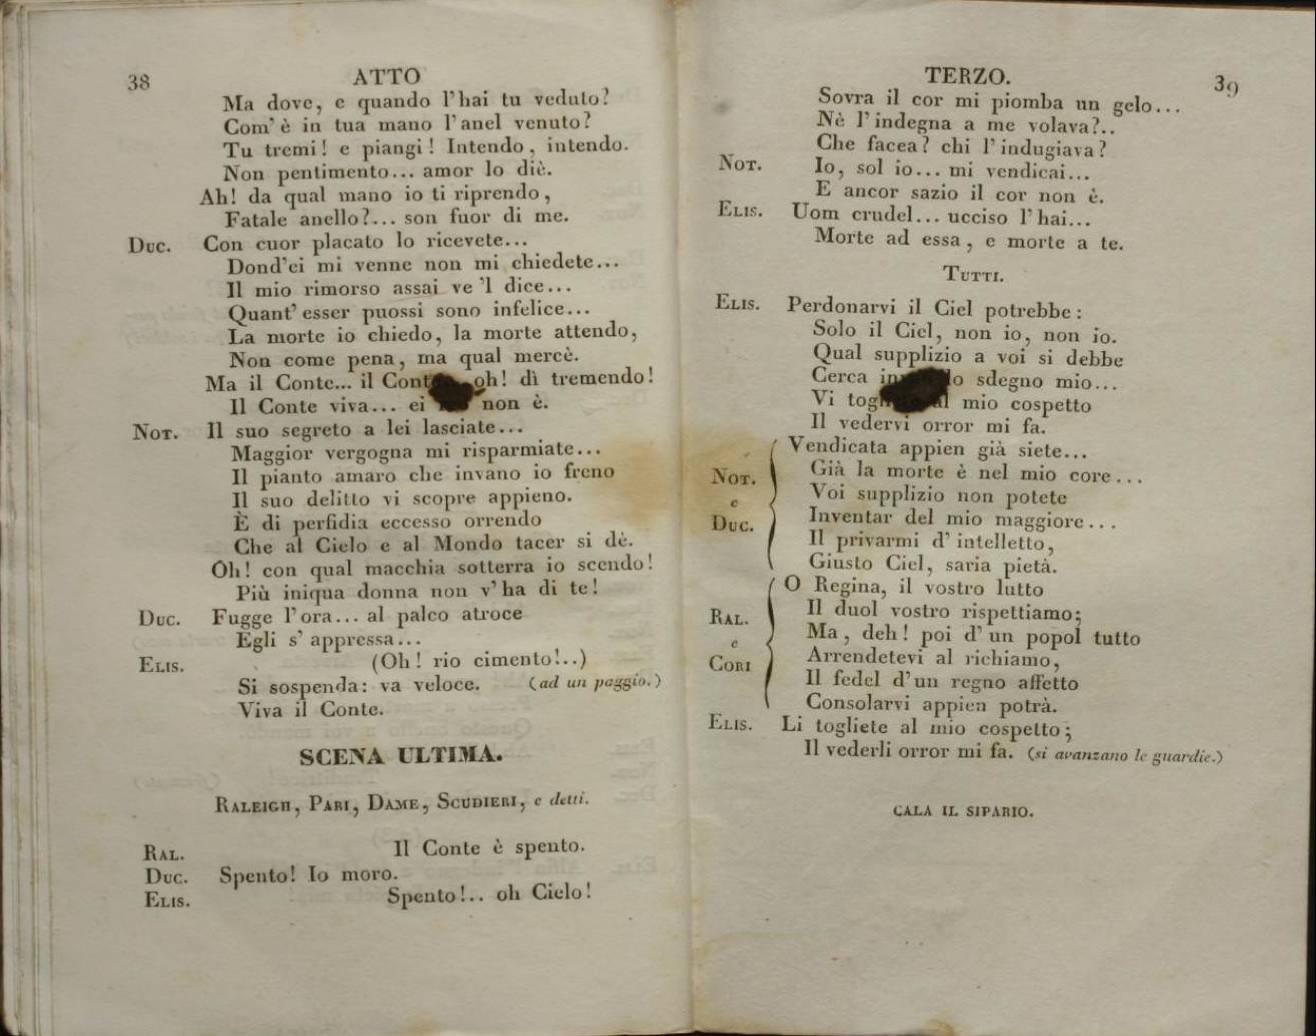 38
ATTO
Ma dove, e quando l'hai tu veduto?
Com'è in tua mano l'anel venuto?
Tu tremi! e piangi! Intendo, intendo.
Non pentimento... amor lo diè.
Ah! da qual mano io ti riprendo,
Fatale anello?... son fuor di me.
Duc. Con cuor placato lo ricevete...
Dond'ei mi venne non mi chiedete...
Il mio rimorso assai ve 'l dice...
Quant'esser puossi sono infelice...
La morte io chiedo, la morte attendo,
Non come pena, ma qual mercè.
Ma il Conte... il oh! dì tremendo!
Il Conte viva... ei non è.
Not. Il suo segreto a lei lasciate...
Maggior vergogna mi risparmiate...
Il pianto amaro che invano io freno
Il suo delitto vi scopre appieno.
È di perfidia eccesso orrendo
Che al Cielo e al Mondo tacer si dè.
Oh! con qual macchia sotterra io scendo!
Più iniqua donna non v'ha di te!
Duc. Fugge l'ora... al palco atroce
Egli s'appressa...
Elis. (Oh! rio cimento!..)
Si sospenda: va veloce. (ad un paggio.)
Viva il Conte.
SCENA ULTIMA.
Raleigh, Pari, Dame, Scudieri, e detti.
Ral. Il Conte è spento.
Duc. Spento! Io moro.
Elis. Spento!.. oh Cielo!
TERZO.
39
Sovra il cor mi piomba un gelo...
Nè l'indegna a me volava?..
Che facea? chi l'indugiava?
Not. Io, sol io... mi vendicai...
E ancor sazio il cor non è.
Elis. Uom crudel... ucciso l'hai...
Morte ad essa, e morte a te.
Tutti.
Elis. Perdonarvi il Ciel potrebbe:
Solo il Ciel, non io, non io.
Qual supplizio a voi si debbe
Cerca sdegno mio...
Vi mio cospetto
Il vedervi orror mi fa.
Not. e Duc. Vendicata appien già siete...
Già la morte è nel mio core...
Voi supplizio non potete
Inventar del mio maggiore...
Il privarmi d'intelletto,
Giusto Ciel, saria pietà.
Ral. e Cori O Regina, il vostro lutto
Il duol vostro rispettiamo;
Ma, deh! poi d'un popol tutto
Arrendetevi al richiamo,
Il fedel d'un regno affetto
Consolarvi appien potrà.
Elis. Li togliete al mio cospetto;
Il vederli orror mi fa. (si avanzano le guardie.)
CALA IL SIPARIO.